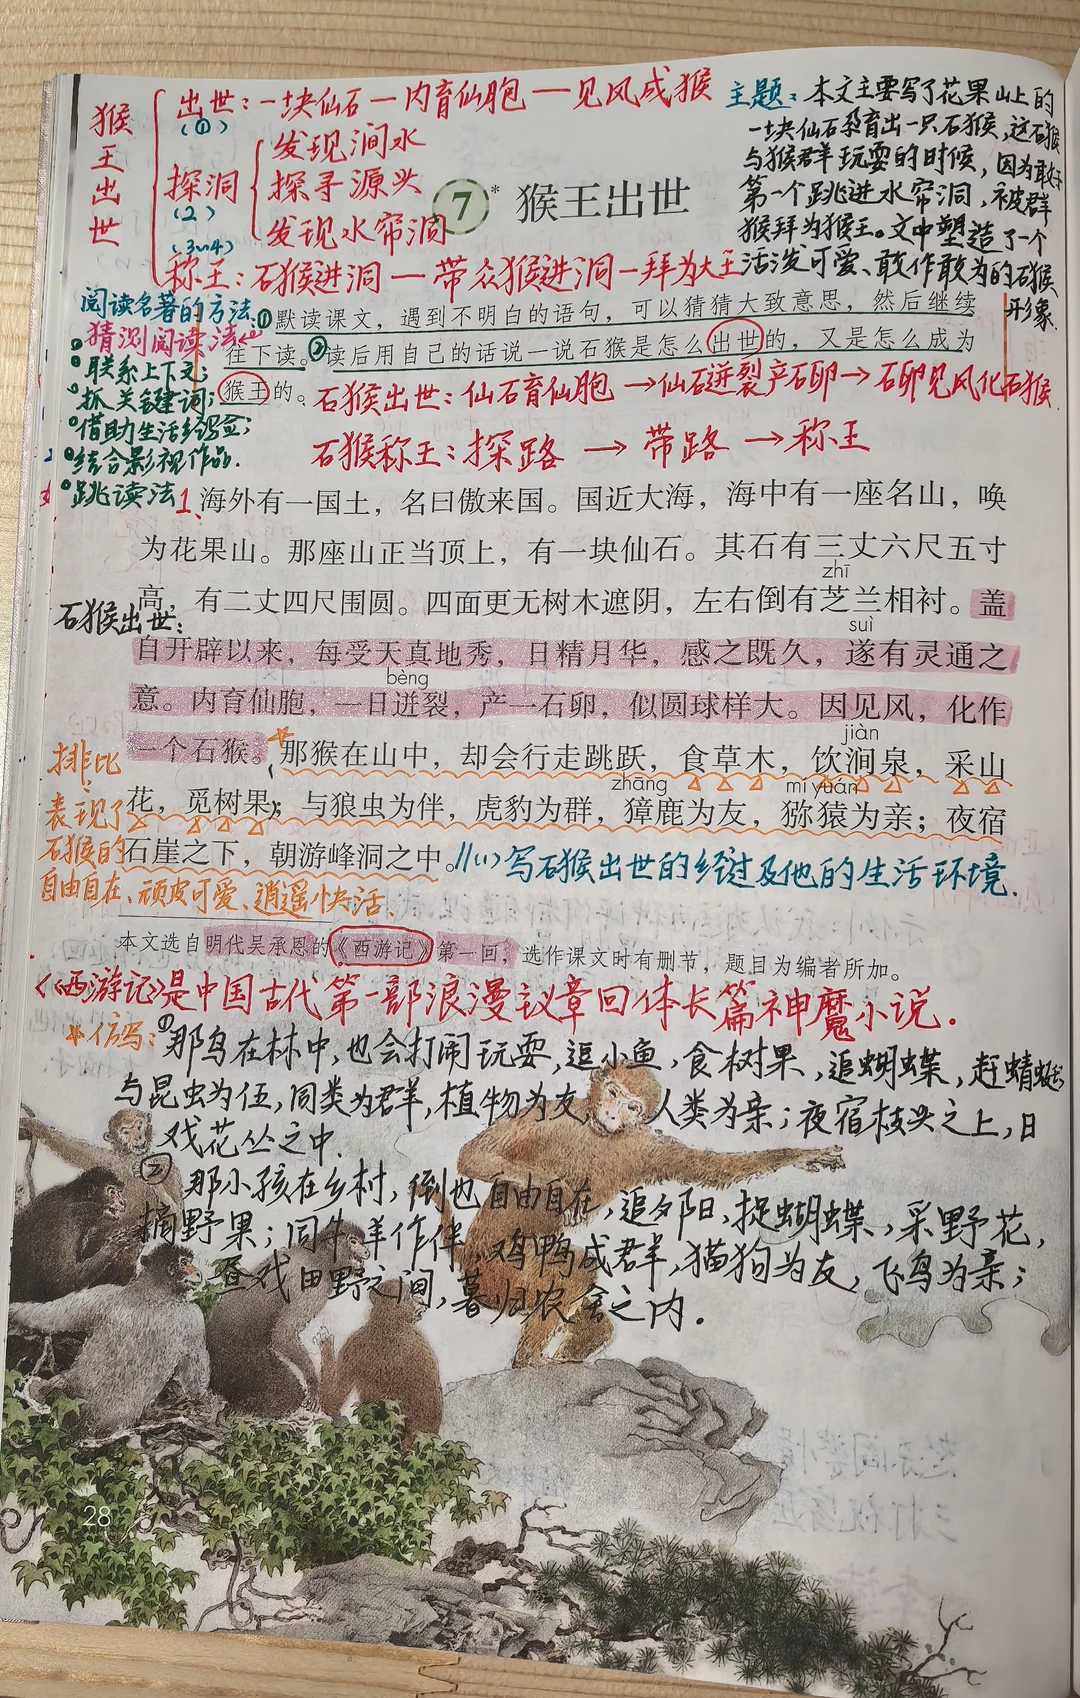 猴王出世
出世：一块仙石—内育仙胞—见风成猴
(1)
探洞
(2)
发现涧水
探寻源头
发现水帘洞
(3~4)
称王：石猴进洞—带众猴进洞—拜为大王
主题：本文主要写了花果山上的
一块仙石孕育出一只石猴，这石猴
与猴群玩耍的时候，因为敢于
第一个跳进水帘洞，被群
猴拜为猴王。文中塑造了一个
活泼可爱、敢作敢为的石猴
形象
7* 猴王出世
阅读名著的方法：
猜测阅读法
联系上下文；
抓关键词；
借助生活经验；
结合影视作品.
跳读法
①默读课文，遇到不明白的语句，可以猜猜大致意思，然后继续
往下读。②读后用自己的话说一说石猴是怎么出世的，又是怎么成为
猴王的。
石猴出世：仙石育仙胞→仙石迸裂产石卵→石卵见风化石猴.
石猴称王：探路→带路→称王
1、海外有一国土，名曰傲来国。国近大海，海中有一座名山，唤
为花果山。那座山正当顶上，有一块仙石。其石有三丈六尺五寸
zhī
高，有二丈四尺围圆。四面更无树木遮阴，左右倒有芝兰相衬。盖
石猴出世：
suì
自开辟以来，每受天真地秀，日精月华，感之既久，遂有灵通之
bèng
意。内育仙胞，一日迸裂，产一石卵，似圆球样大。因见风，化作
jiàn
一个石猴。那猴在山中，却会行走跳跃，食草木，饮涧泉，采山
zhāng mí yuán
花，觅树果；与狼虫为伴，虎豹为群，獐鹿为友，猕猿为亲；夜宿
石崖之下，朝游峰洞之中。//(1)写石猴出世的经过及他的生活环境.
排比
表现了
石猴的
自由自在、顽皮可爱、逍遥快活.
本文选自明代吴承恩的《西游记》第一回，选作课文时有删节，题目为编者所加。
《西游记》是中国古代第一部浪漫主义章回体长篇神魔小说.
仿写：①那鸟在林中，也会打闹玩耍，追小鱼，食树果，追蝴蝶，赶蜻蜓
与昆虫为伍，同类为群，植物为友，人类为亲；夜宿枝头之上，日
戏花丛之中.
②那小孩在乡村，倒也自由自在，追夕阳，捉蝴蝶，采野花，
摘野果；同牛羊作伴，鸡鸭成群，猫狗为友，飞鸟为亲；
昼戏田野之间，暮归农舍之内.
28